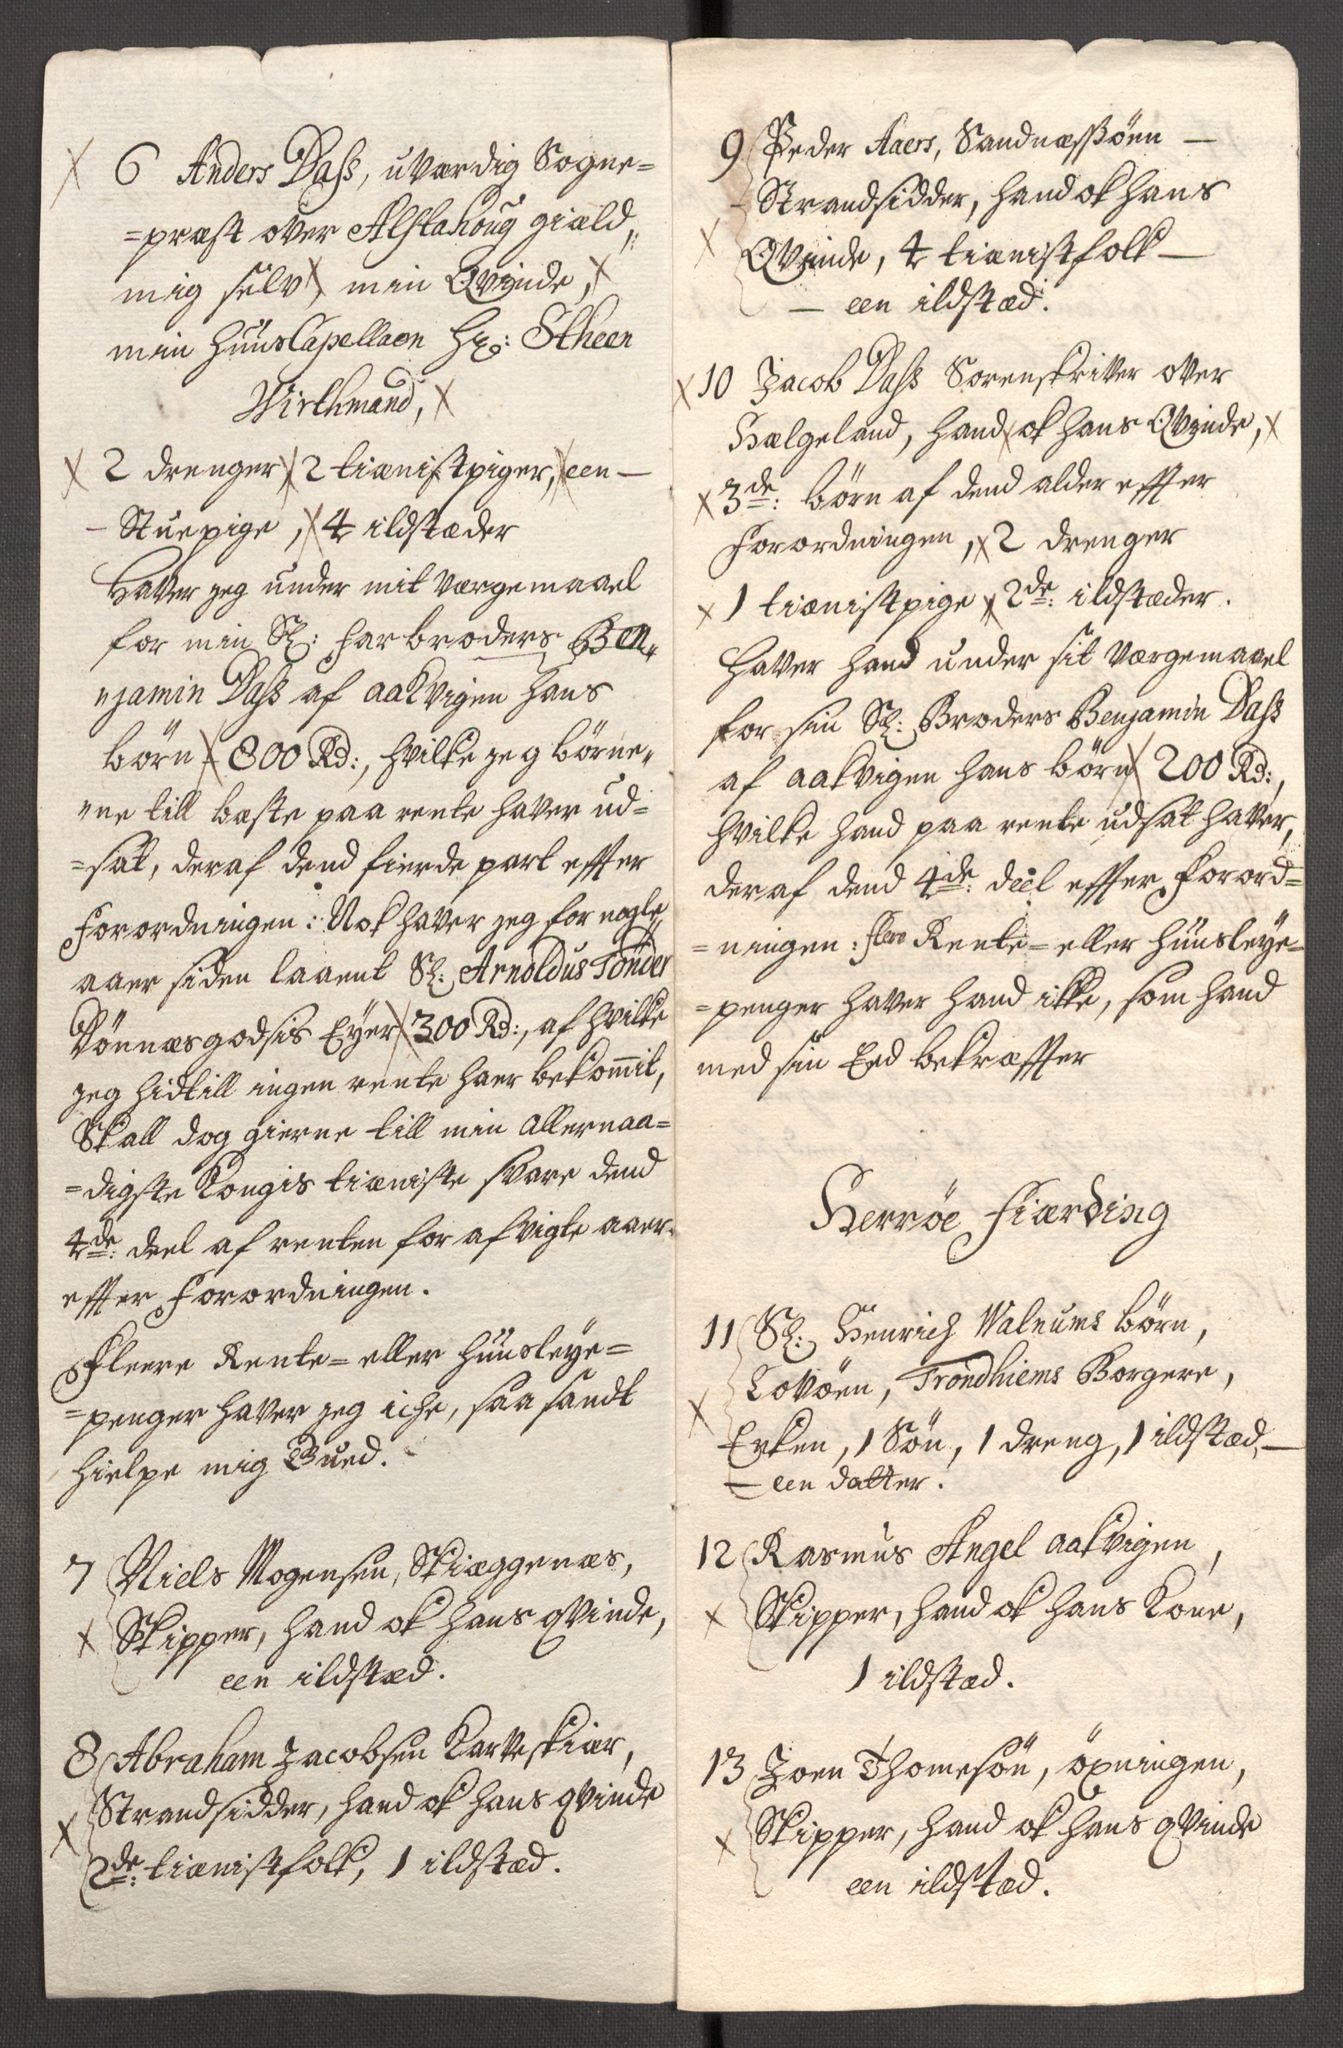 6 Anders Dass, uværdig Sogne=
=præst over Alstahoug giæld,,
mig selv, min Qvinde,
min HuusCapellaen Hr: Stheen
Wirthmand,
2 drenger, 2 tiænistpiger, een
Stuepige, 4 ildstæder
Haver jeg under mit værgemaael
for min Sl: farbroders Ben,,
,,jamin Dass af aakvigen hans
børn 800 Rd:, hvilke jeg børne,,
,,ne till bæste paa rente haver ud=
=sat, deraf dend fierde part effter
Forordningen: Nok haver jeg for nogle
aaer siden laaent Sl: Arnoldus Tönder
Dönnæsgodsis Eyer 300 Rd:, af hvilke
jeg hidtill ingen rente haer bekommit,
Skall dog gierne till min allernaa=
=digste Kongis tiæniste svare dend
4de: deel af renten for afvigte aaer
effter Forordningen.
Fleere Rente= eller huusleye=
=penger haver jeg iche, saa sandt
hielpe mig Gued.
7 Niels Mogensen, Skiæggenæs,
Skipper, hand ok hans qvinde,
een ildstæd.
8 Abraham Jacobsen Karveskiær,
Strandsidder, hand ok hans qvinde
2de: tiænistfolk, 1 ildstæd.
9 Peder Aaers, Sandnæssöen —
Strandsidder, hand ok hans
Qvinde, 4 tiænistfolk —
— een ildstæd.
10 Jacob Dass Sorenskriver over
Hælgeland, hand ok hans Qvinde,
3de: børn af dend alder effter
Forordningen, 2 drenger
1 tiænistpige 2de: ildstæder.
Haver hand under sit værgemaael
for sin Sl: Broders Benjamin Dass
af aakvigen hans børn 200 Rd:,
hvilke hand paa rente udsat haver,
deraf dend 4de: deel effter Forord=
=ningen: flere Rente= eller huusleye=
=penger haver hand ikke, som hand
med sin Eed bekræffter
Herröe Fiærding
11 Sl: Henrich Walnums børn,
Lovöen, Trondhiems Borgere,
Enken, 1 Søn, 1 dreng, 1 ildstæd, —
— een datter.
12 Rasmus Angel aakvigen,
Skipper, hand ok hans Kone,
1 ildstæd.
13 Joen Thomesön, öxningen,
Skipper, hand ok hans qvinde
een ildstæd.